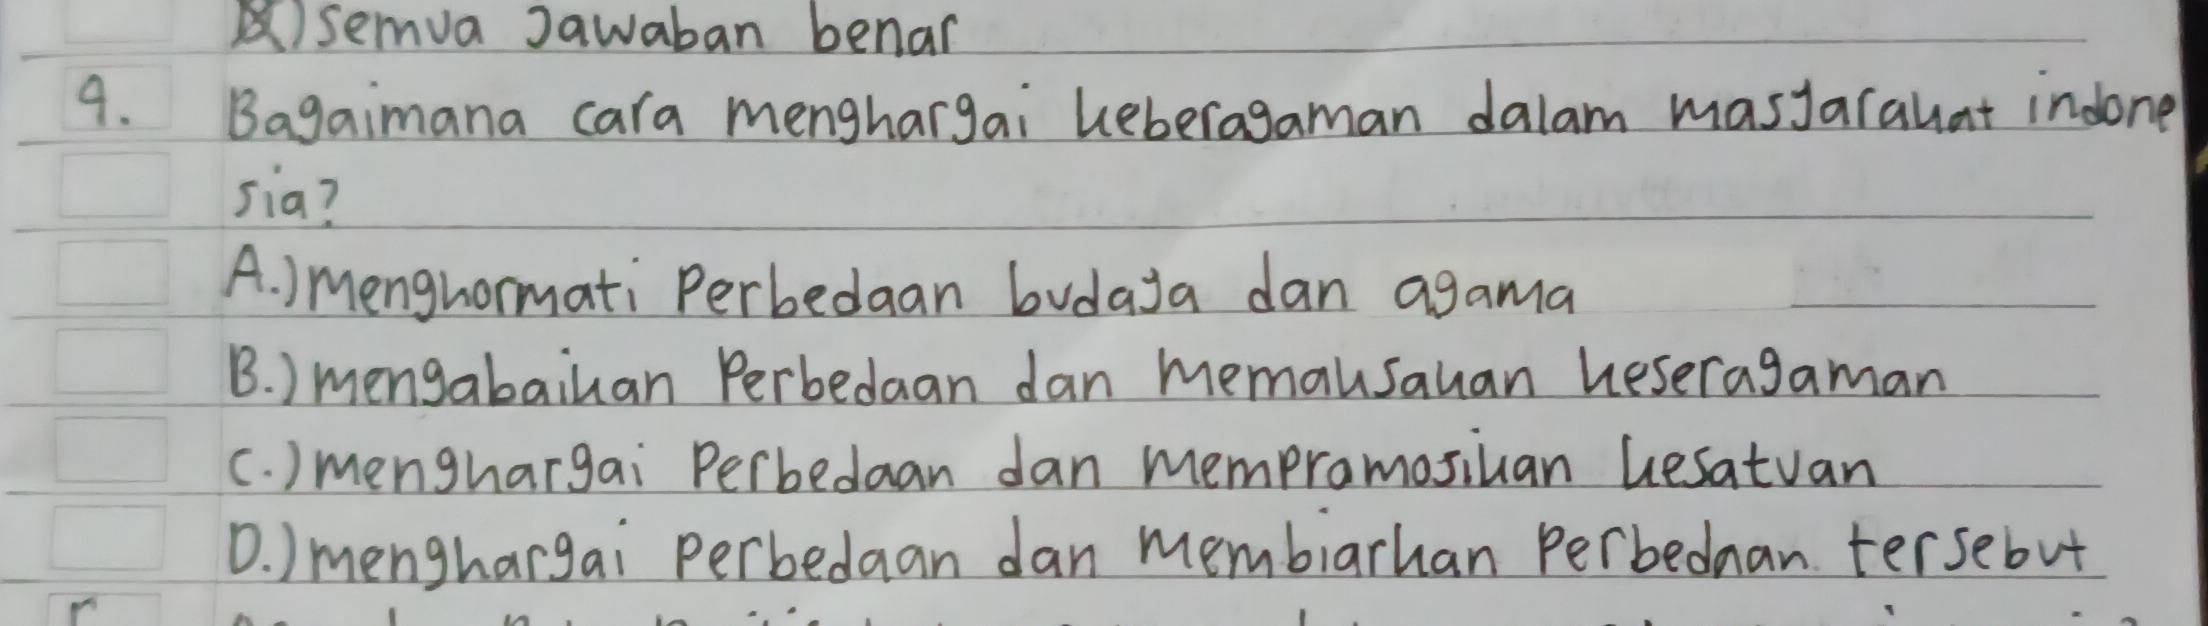 D) semua Jawaban benar
9. Bagaimana cara menghargai keberagaman dalam masyarakat indone
sia?
A.) menghormati Perbedaan budaya dan agama
B.) mengabaikan Perbedaan dan memaksakan keseragaman
C.) menghargai Perbedaan dan mempromosikan kesatuan
D.) menghargai perbedaan dan membiarkan Perbedaan tersebut